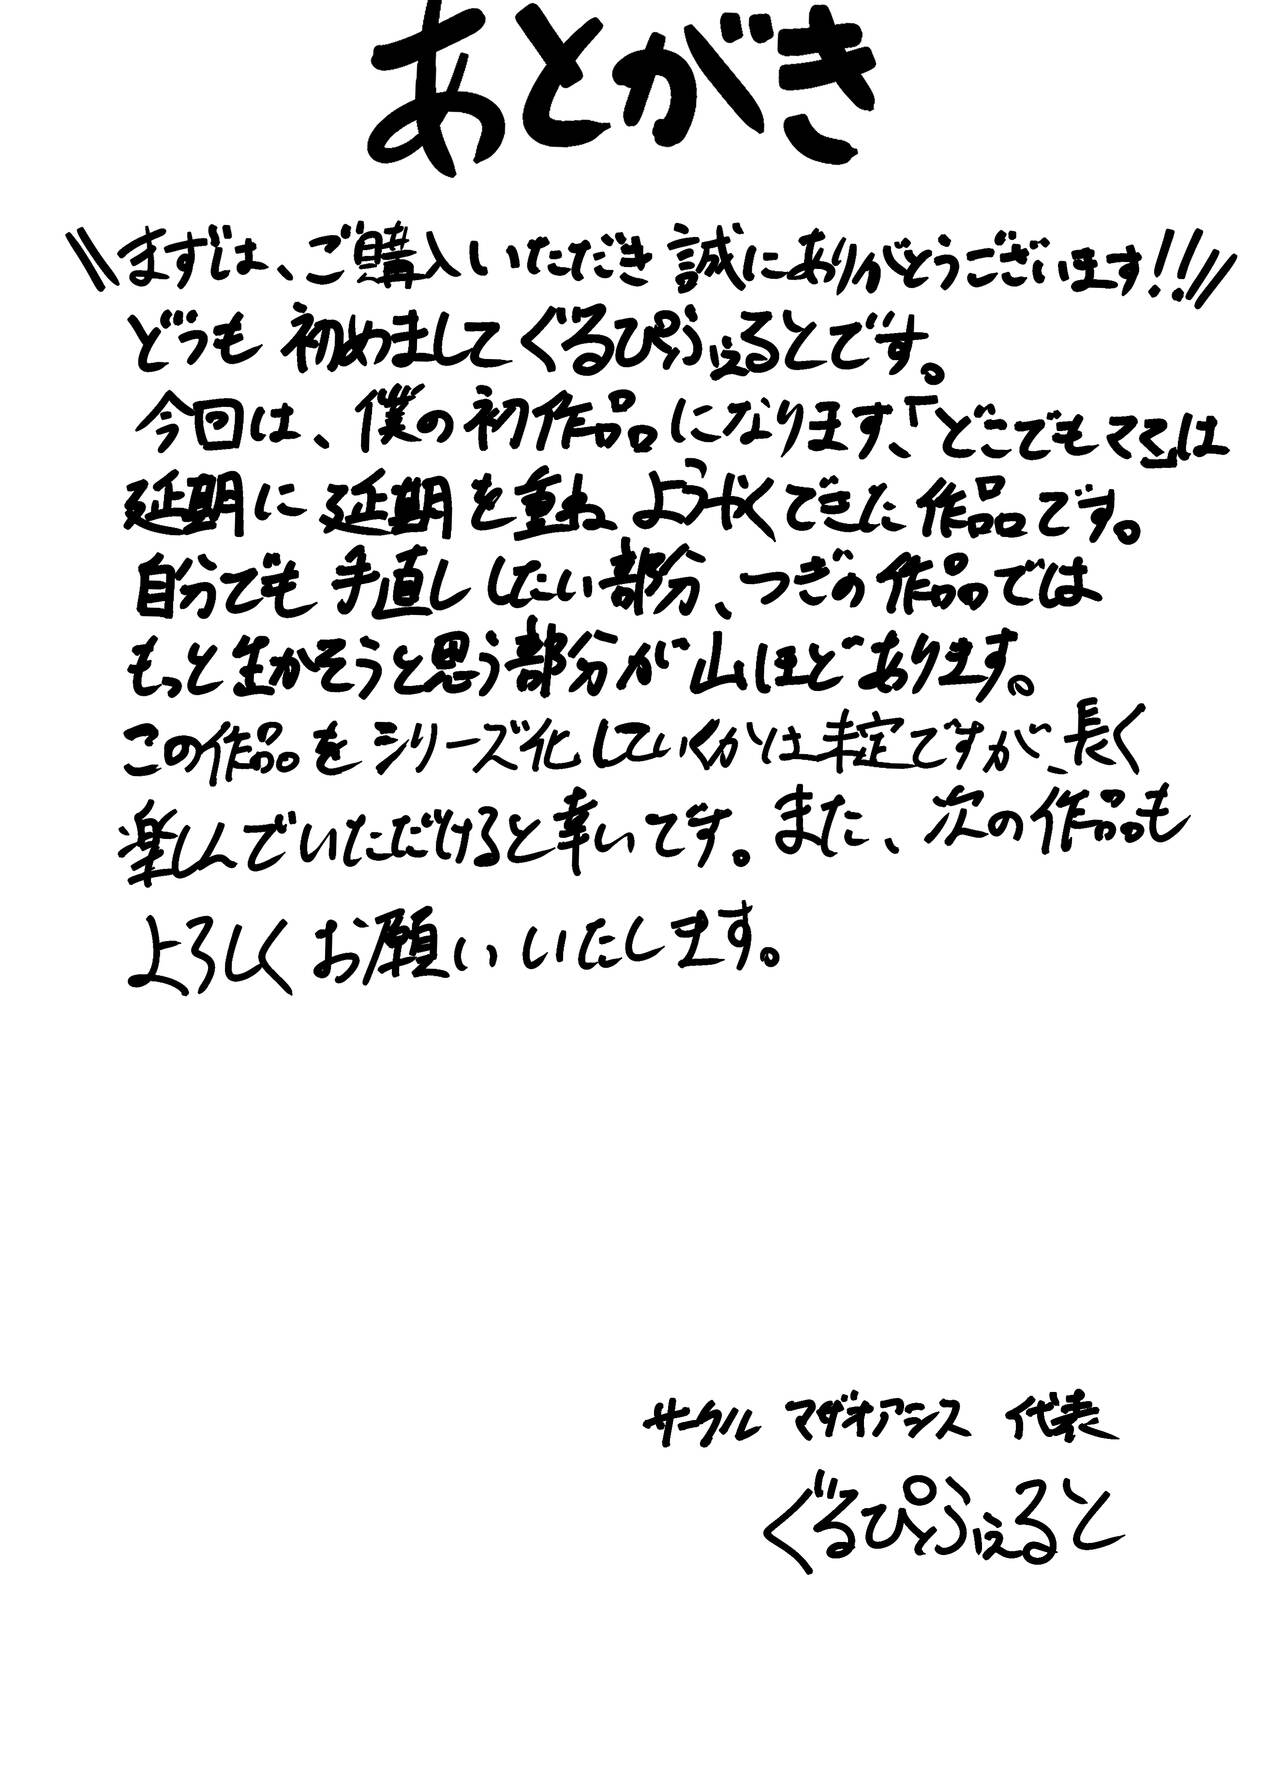 あとがき
\\まずは、ご購入いただき誠にありがとうございます!!//
どうも 初めまして ぐるぴふぇるとです。
今回は、僕の初作品になります、「どこでもママ」は
延期に延期を重ね ようやくできた作品です。
自分でも手直ししたい部分、つぎの作品では
もっと生かそうと思う部分が山ほどあります。
この作品をシリーズ化していくかは未定ですが、長く
楽しんでいただけると幸いです。また、次の作品も
よろしくお願いいたします。
サークル マザオアシス 代表
ぐるぴふぇると